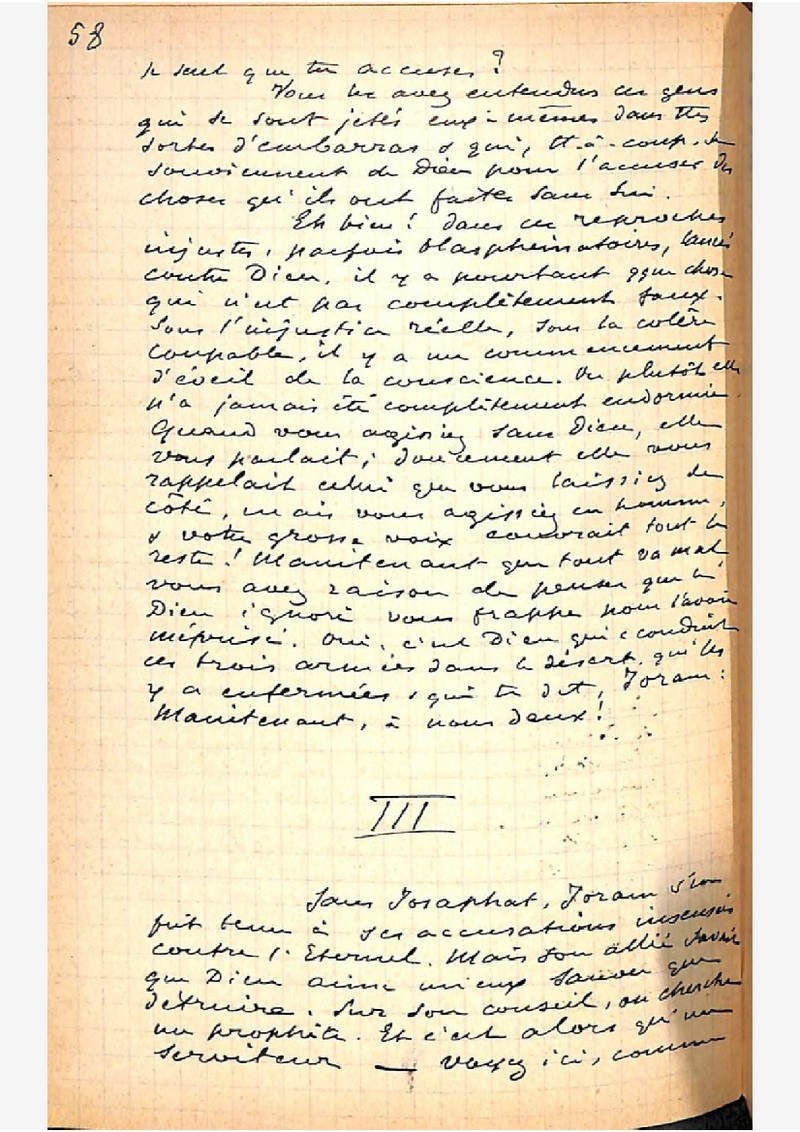 58
le seul que tu accuses ?
Vous les avez entendus ces gens
qui se sont jetés eux-mêmes dans ttes
sortes d'embarras & qui, tt-à-coup, se
souviennent de Dieu pour l'accuser des
choses qu'ils ont faites sans Lui.
Eh bien ! dans ces reproches
injustes, parfois blasphématoires, lancés
contre Dieu, il y a pourtant qque chose
qui n'est pas complètement faux.
Sous l'injustice réelle, sous la colère
coupable, il y a un commencement
d'éveil de la conscience. Ou plutôt elle
n'a jamais été complètement endormie.
Quand vous agissiez sans Dieu, elle
vous parlait ; doucement elle vous
rappelait celui que vous laissiez de
côté, mais vous agissiez en homme,
& votre grosse voix couvrait tout le
reste ! Maintenant que tout va mal
vous avez raison de penser que le
Dieu ignoré vous frappe pour l'avoir
méprisé. Oui, c'est Dieu qui a conduit
ces trois armées dans le désert, qui les
y a enfermées & qui te dit, Joram :
Maintenant, à nous deux !
III
Sans Josaphat, Joram s'en
fût tenu à ses accusations insensées
contre l'Eternel. Mais son allié savait
que Dieu aime mieux sauver que
détruire. Sur son conseil, on cherche
un prophète. Et c'est alors qu'un
serviteur — voyez ici, comme